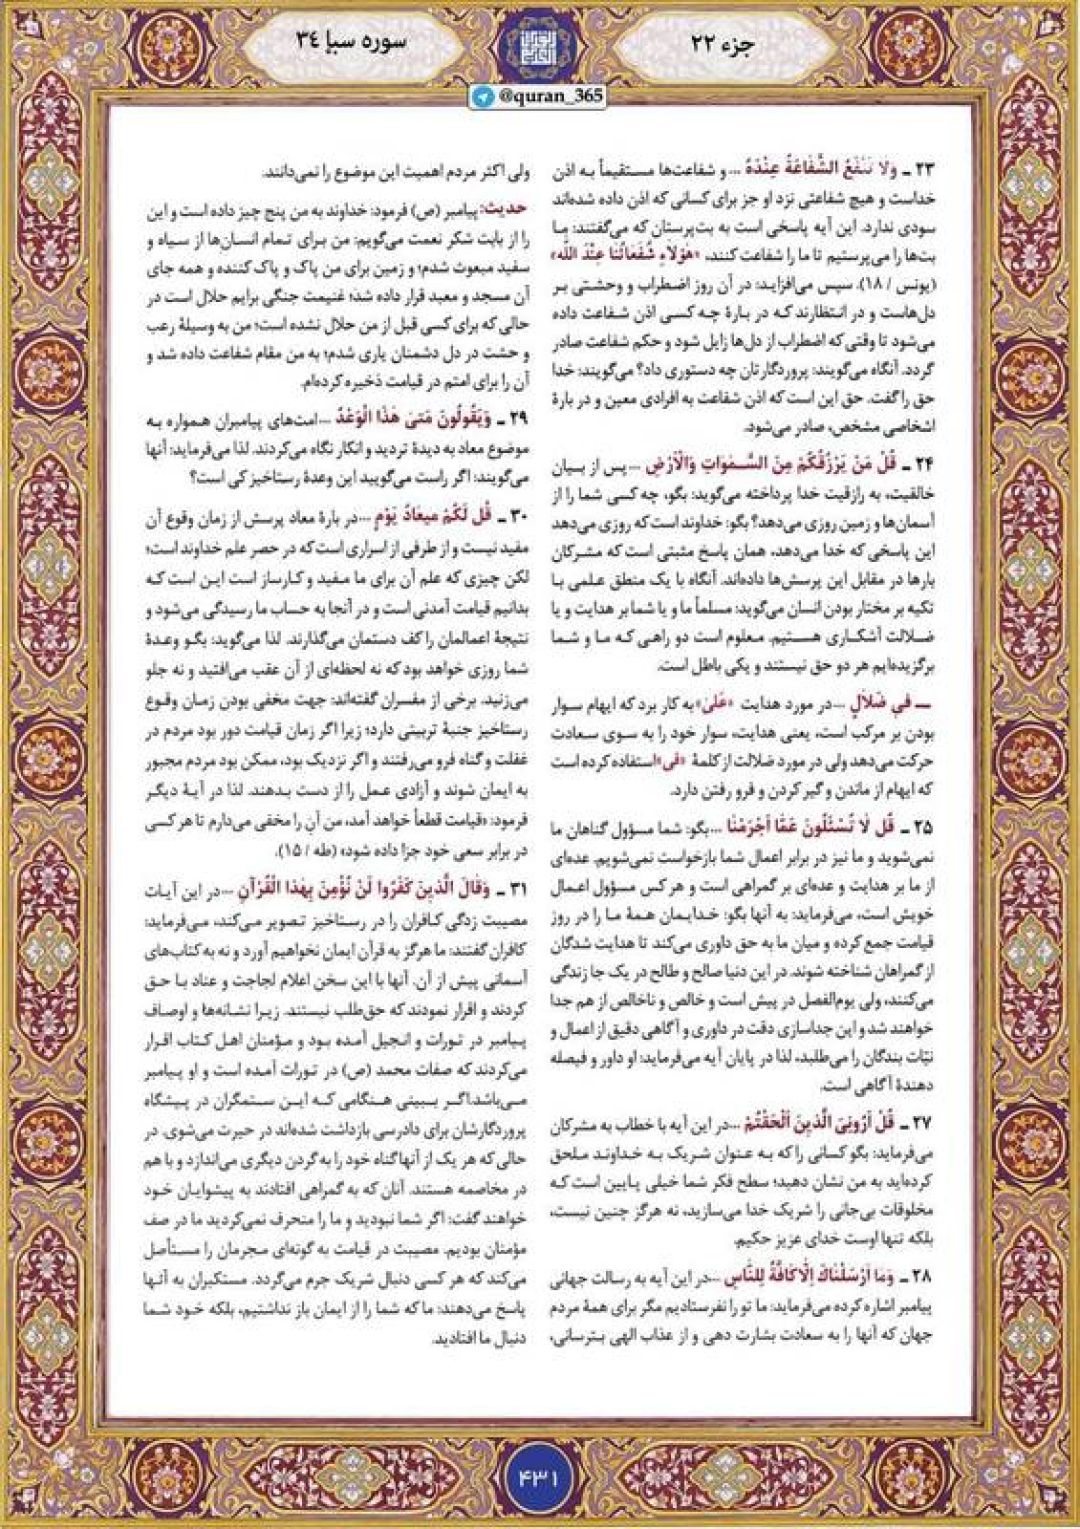 جزء ۲۲
سوره سبإ ۳٤
@quran_365
۲۳ ـ وَلا تَنْفَعُ الشَّفَاعَةُ عِنْدَهُ ... و شفاعت‌ها مستقیماً به اذن
خداست و هیچ شفاعتی نزد او جز برای کسانی که اذن داده شده‌اند
سودی ندارد. این آیه پاسخی است به بت‌پرستان که می‌گفتند: ما
بت‌ها را می‌پرستیم تا ما را شفاعت کنند، «هؤُلاءِ شُفَعَائُنا عِنْدَ الله»
(یونس / ۱۸). سپس می‌افزاید: در آن روز اضطراب و وحشتی بر
دل‌هاست و در انتظارند که در بارهٔ چه کسی اذن شفاعت داده
می‌شود تا وقتی که اضطراب از دل‌ها زایل شود و حکم شفاعت صادر
گردد. آنگاه می‌گویند: پروردگارتان چه دستوری داد؟ می‌گویند: خدا
حق را گفت. حق این است که اذن شفاعت به افرادی معین و در بارهٔ
اشخاصی مشخص، صادر می‌شود.
۲۴ ـ قُلْ مَنْ یَرْزُقُکُمْ مِنَ السَّمٰوَاتِ وَالْاَرْضِ ... پس از بیان
خالقیت، به رازقیت خدا پرداخته می‌گوید: بگو، چه کسی شما را از
آسمان‌ها و زمین روزی می‌دهد؟ بگو: خداوند است که روزی می‌دهد
این پاسخی که خدا می‌دهد، همان پاسخ مثبتی است که مشرکان
بارها در مقابل این پرسش‌ها داده‌اند. آنگاه با یک منطق علمی با
تکیه بر مختار بودن انسان می‌گوید: مسلماً ما و یا شما بر هدایت و یا
ضلالت آشکاری هستیم. معلوم است دو راهی که ما و شما
برگزیده‌ایم هر دو حق نیستند و یکی باطل است.
ـــ فی ضَلالٍ ... در مورد هدایت «عَلیٰ» به کار برد که ایهام سوار
بودن بر مرکب است، یعنی هدایت، سوار خود را به سوی سعادت
حرکت می‌دهد ولی در مورد ضلالت از کلمهٔ «فی» استفاده کرده است
که ایهام از ماندن و گیر کردن و فرو رفتن دارد.
۲۵ ـ قُل لا تُسْئَلُونَ عَمَّا اَجْرَمْنا ... بگو: شما مسؤول گناهان ما
نمی‌شوید و ما نیز در برابر اعمال شما بازخواست نمی‌شویم. عده‌ای
از ما بر هدایت و عده‌ای بر گمراهی است و هر کس مسؤول اعمال
خویش است، می‌فرماید: به آنها بگو: خدایمان همهٔ ما را در روز
قیامت جمع کرده و میان ما به حق داوری می‌کند تا هدایت شدگان
از گمراهان شناخته شوند. در این دنیا صالح و طالح در یک جا زندگی
می‌کنند، ولی یوم‌الفصل در پیش است و خالص و ناخالص از هم جدا
خواهند شد و این جداسازی دقت در داوری و آگاهی دقیق از اعمال و
نیّات بندگان را می‌طلبد، لذا در پایان آیه می‌فرماید: او داور و فیصله
دهندهٔ آگاهی است.
۲۷ ـ قُلْ اَرُونِیَ الَّذینَ اَلْحَقْتُمْ ... در این آیه با خطاب به مشرکان
می‌فرماید: بگو کسانی را که به عنوان شریک به خداوند ملحق
کرده‌اید به من نشان دهید؛ سطح فکر شما خیلی پایین است که
مخلوقات بی‌جانی را شریک خدا می‌سازید، نه هرگز چنین نیست،
بلکه تنها اوست خدای عزیز حکیم.
۲۸ ـ وَمَا اَرْسَلْنَاكَ اِلَّا كَافَّةً لِلنَّاسِ ... در این آیه به رسالت جهانی
پیامبر اشاره کرده می‌فرماید: ما تو را نفرستادیم مگر برای همهٔ مردم
جهان که آنها را به سعادت بشارت دهی و از عذاب الهی بترسانی،
ولی اکثر مردم اهمیت این موضوع را نمی‌دانند.
حدیث: پیامبر (ص) فرمود: خداوند به من پنج چیز داده است و این
را از بابت شکر نعمت می‌گویم: من برای تمام انسان‌ها از سیاه و
سفید مبعوث شدم؛ و زمین برای من پاک و پاک کننده و همه جای
آن مسجد و معبد قرار داده شد؛ غنیمت جنگی برایم حلال است در
حالی که برای کسی قبل از من حلال نشده است؛ من به وسیلهٔ رعب
و حشت در دل دشمنان یاری شدم؛ به من مقام شفاعت داده شد و
آن را برای امتم در قیامت ذخیره کرده‌ام.
۲۹ ـ وَیَقُولُونَ مَتیٰ هٰذَا الْوَعْدُ ... امت‌های پیامبران همواره به
موضوع معاد به دیدهٔ تردید و انکار نگاه می‌کردند. لذا می‌فرماید: آنها
می‌گویند: اگر راست می‌گویید این وعدهٔ رستاخیز کی است؟
۳۰ ـ قُل لَکُمْ میعَادُ یَوْمٍ ... در بارهٔ معاد پرسش از زمان وقوع آن
مفید نیست و از طرفی از اسراری است که در حصر علم خداوند است؛
لکن چیزی که علم آن برای ما مفید و کارساز است این است که
بدانیم قیامت آمدنی است و در آنجا به حساب ما رسیدگی می‌شود و
نتیجهٔ اعمالمان را کف دستمان می‌گذارند. لذا می‌گوید: بگو وعدهٔ
شما روزی خواهد بود که نه لحظه‌ای از آن عقب می‌افتید و نه جلو
می‌زنید. برخی از مفسران گفته‌اند: جهت مخفی بودن زمان وقوع
رستاخیز جنبهٔ تربیتی دارد؛ زیرا اگر زمان قیامت دور بود مردم در
غفلت و گناه فرو می‌رفتند و اگر نزدیک بود، ممکن بود مردم مجبور
به ایمان شوند و آزادی عمل را از دست بدهند. لذا در آیهٔ دیگر
فرمود: «قیامت قطعاً خواهد آمد، من آن را مخفی می‌دارم تا هر کسی
در برابر سعی خود جزا داده شود» (طه / ۱۵).
۳۱ ـ وَقَالَ الَّذینَ کَفَرُوا لَنْ نُؤْمِنَ بِهٰذَا الْقُرْآنِ ... در این آیات
مصیبت زدگی کافران را در رستاخیز تصویر می‌کند، می‌فرماید:
کافران گفتند: ما هرگز به قرآن ایمان نخواهیم آورد و نه به کتاب‌های
آسمانی پیش از آن. آنها با این سخن اعلام لجاجت و عناد با حق
کردند و اقرار نمودند که حق‌طلب نیستند. زیرا نشانه‌ها و اوصاف
پیامبر در تورات و انجیل آمده بود و مؤمنان اهل کتاب اقرار
می‌کردند که صفات محمد (ص) در تورات آمده است و او پیامبر
می‌باشد. اگر ببینی هنگامی که این ستمگران در پیشگاه
پروردگارشان برای دادرسی بازداشت شده‌اند در حیرت می‌شوی. در
حالی که هر یک از آنها گناه خود را به گردن دیگری می‌اندازد و با هم
در مخاصمه هستند. آنان که به گمراهی افتادند به پیشوایان خود
خواهند گفت: اگر شما نبودید و ما را منحرف نمی‌کردید ما در صف
مؤمنان بودیم. مصیبت در قیامت به گونه‌ای مجرمان را مستأصل
می‌کند که هر کسی دنبال شریک جرم می‌گردد. مستکبران به آنها
پاسخ می‌دهند: ما که شما را از ایمان باز نداشتیم، بلکه خود شما
دنبال ما افتادید.
۴۳۱